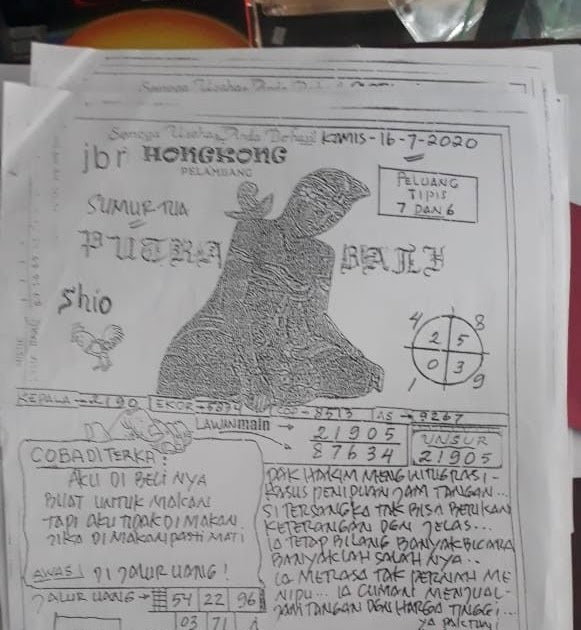 Semoga Usaha Anda Berhasil KAMIS-16-7-2020
jbr HONGKONG
PELAMBANG
PELUANG
TIPIS
7 DAN 6
SUMUR TUA
PUTRA
Shio
4 8
2 5
0 3
1 9
KEPALA→2190 EKOR→5834 COP→8513 AS→9267
LAWAN main→ 21905
87634
UNSUR
21905
COBA DI TERKA:
AKU DI BELI NYA
BUAT UNTUK MAKAN
TAPI AKU TIDAK DI MAKAN.
JIKA DI MAKAN PASTI MATI
AWAS! DI JALUR UANG!
JALUR UANG→ 54 22 96
03 71
PAK HAKIM MENG INTUGRASI-
KASUS PENIPUAN JAM TANGAN...
SI TERSANGKA TAK BISA BERIKAN
KETERANGAN DGN JELAS...
IA TETAP BILANG BANYAK BICARA
BANYAKLAH SALAH NYA..
IA MERASA TAK PERNAH ME
NIPU... IA CUMAN MENJUAL-
JAM TANGAN DGN HARGA TINGGI...